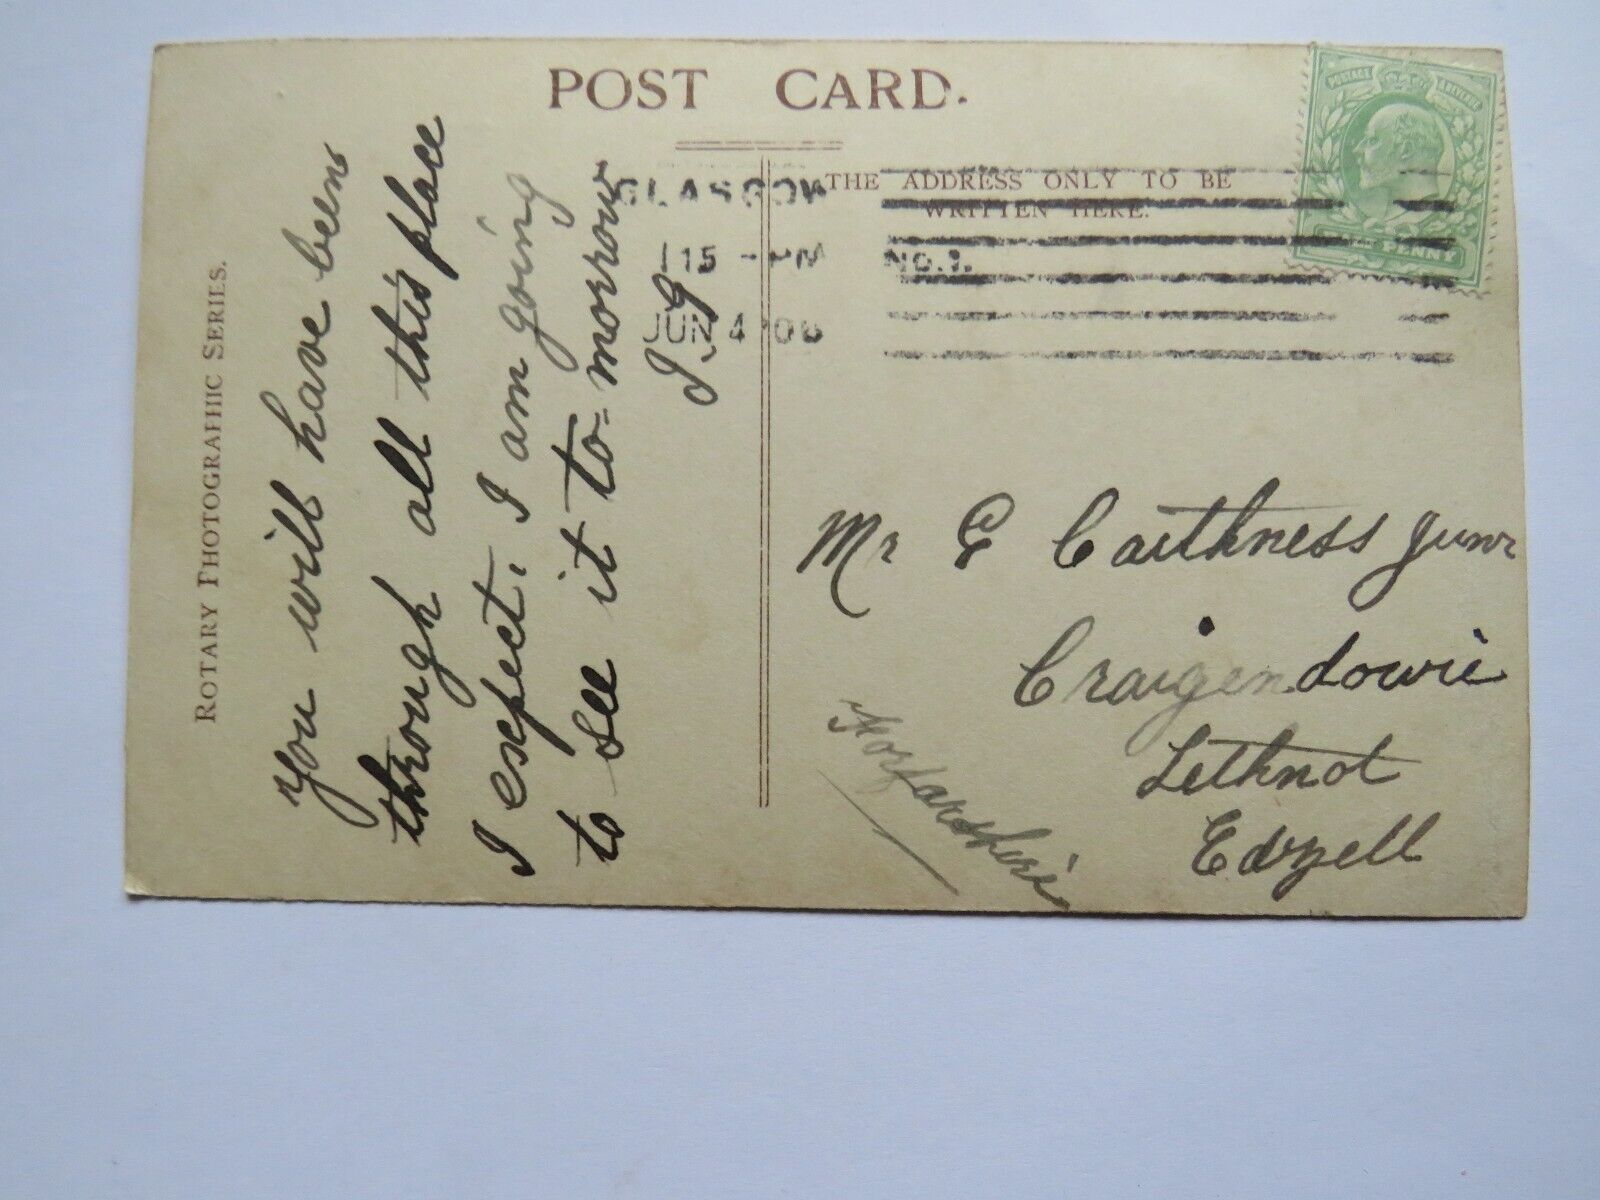 POST CARD.
THE ADDRESS ONLY TO BE
WRITTEN HERE.
ROTARY PHOTOGRAPHIC SERIES.
POSTAGE & REVENUE
PENNY
GLASGOW
15 - PM No.1.
JUN 4 06
You will have been
through all this place
I expect, I am going
to see it to-morrow
Mr G Caithness Junr
Craigendowie
Lethnot
Edzell
Forfarshire